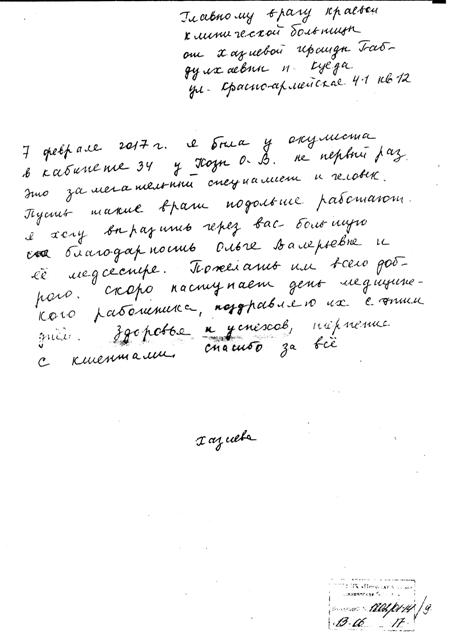 Главному врачу краевой
клинической больницы
от Хазиевой Ираиды Габ-
дулхаевны п. Куеда
ул. Красноармейская 41 кв 12
7 февраля 2017 г. я была у окулиста
в кабинете 34 у Позн О. В. не первый раз.
Это замечательный специалист и человек.
Пусть такие врачи подольше работают.
Я хочу выразить через вас большую
благодарность Ольге Валерьевне и
её медсестре. Пожелать им всего доб-
рого. Скоро наступает день медицинс-
кого работника, поздравляю их с этим
днём. Здоровья и успехов, терпение
с клиентами. спасибо за всё
Хазиева
13 06 17